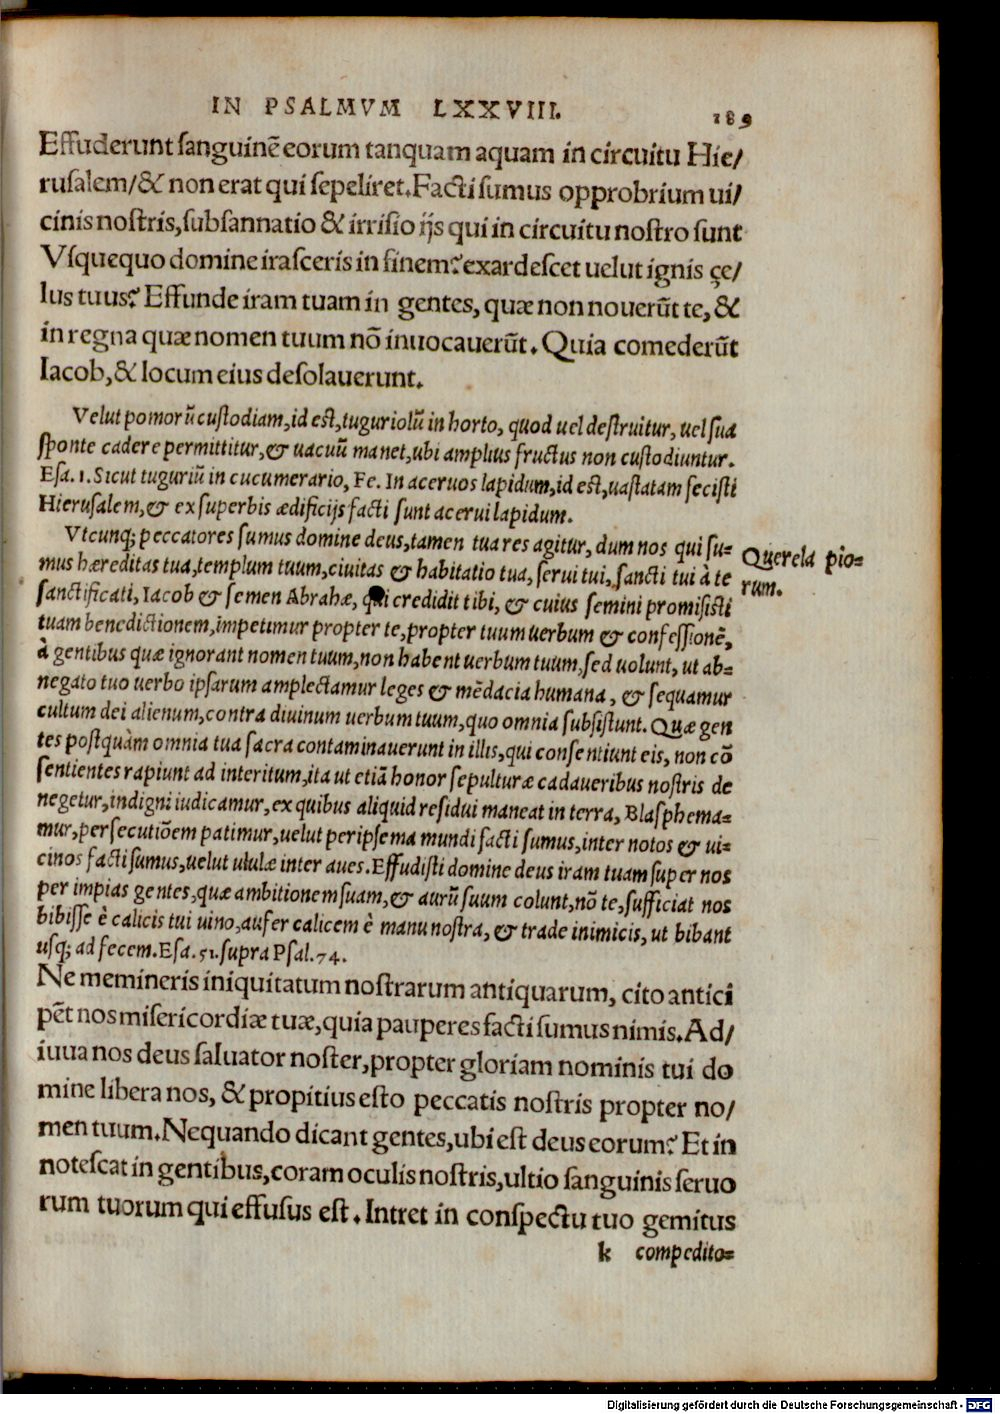 IN PSALMVM LXXVIII. 189
Effuderunt ſanguinẽ eorum tanquam aquam in circuitu Hie/
ruſalem/& non erat qui ſepeliret. Facti ſumus opprobrium ui/
cinis noſtris, ſubſannatio & irriſio ijs qui in circuitu noſtro ſunt
Vſquequo domine iraſceris in finem? exardeſcet uelut ignis ʒe/
lus tuus? Effunde iram tuam in gentes, quæ non nouerũt te, &
in regna quæ nomen tuum nõ inuocauerũt. Quia comederũt
Iacob, & locum eius deſolauerunt.
Velut pomorũ cuſtodiam, id eſt, tuguriolũ in horto, quod uel deſtruitur, uel ſua
ſponte cadere permittitur, & uacuũ manet, ubi amplius fructus non cuſtodiuntur.
Eſa. 1. Sicut tuguriũ in cucumerario, Fe. In aceruos lapidum, id eſt, uaſtatam feciſti
Hieruſalem, & ex ſuperbis ædificijs facti ſunt acerui lapidum.
Vtcunq; peccatores ſumus domine deus, tamen tua res agitur, dum nos qui ſu=
mus hæreditas tua, templum tuum, ciuitas & habitatio tua, ſerui tui, ſancti tui à te
ſanctificati, Iacob & ſemen Abrahæ, qui credidit tibi, & cuius ſemini promiſiſti
tuam benedictionem, impetimur propter te, propter tuum uerbum & confeſſionẽ,
à gentibus quæ ignorant nomen tuum, non habent uerbum tuum, ſed uolunt, ut ab=
negato tuo uerbo ipſarum amplectamur leges & mẽdacia humana, & ſequamur
cultum dei alienum, contra diuinum uerbum tuum, quo omnia ſubſiſtunt. Quæ gen
tes poſtquàm omnia tua ſacra contaminauerunt in illis, qui conſentiunt eis, non cõ
ſentientes rapiunt ad interitum, ita ut etiã honor ſepulturæ cadaueribus noſtris de
negetur, indigni iudicamur, ex quibus aliquid reſidui maneat in terra, Blaſphema=
mur, perſecutiõem patimur, uelut peripſema mundi facti ſumus, inter notos & ui=
cinos facti ſumus, uelut ululæ inter aues. Effudiſti domine deus iram tuam ſuper nos
per impias gentes, quæ ambitionem ſuam, & aurũ ſuum colunt, nõ te, ſufficiat nos
bibiſſe è calicis tui uino, aufer calicem è manu noſtra, & trade inimicis, ut bibant
uſq; ad fecem. Eſa. 51. ſupra Pſal. 74.
Querela pio=
rum.
Ne memineris iniquitatum noſtrarum antiquarum, cito antici
pẽt nos miſericordiæ tuæ, quia pauperes facti ſumus nimis. Ad/
iuua nos deus ſaluator noſter, propter gloriam nominis tui do
mine libera nos, & propitius eſto peccatis noſtris propter no/
men tuum. Nequando dicant gentes, ubi eſt deus eorum? Et in
noteſcat in gentibus, coram oculis noſtris, ultio ſanguinis ſeruo
rum tuorum qui effuſus eſt. Intret in conſpectu tuo gemitus
k compedito=
Digitalisierung gefördert durch die Deutsche Forschungsgemeinschaft - DFG